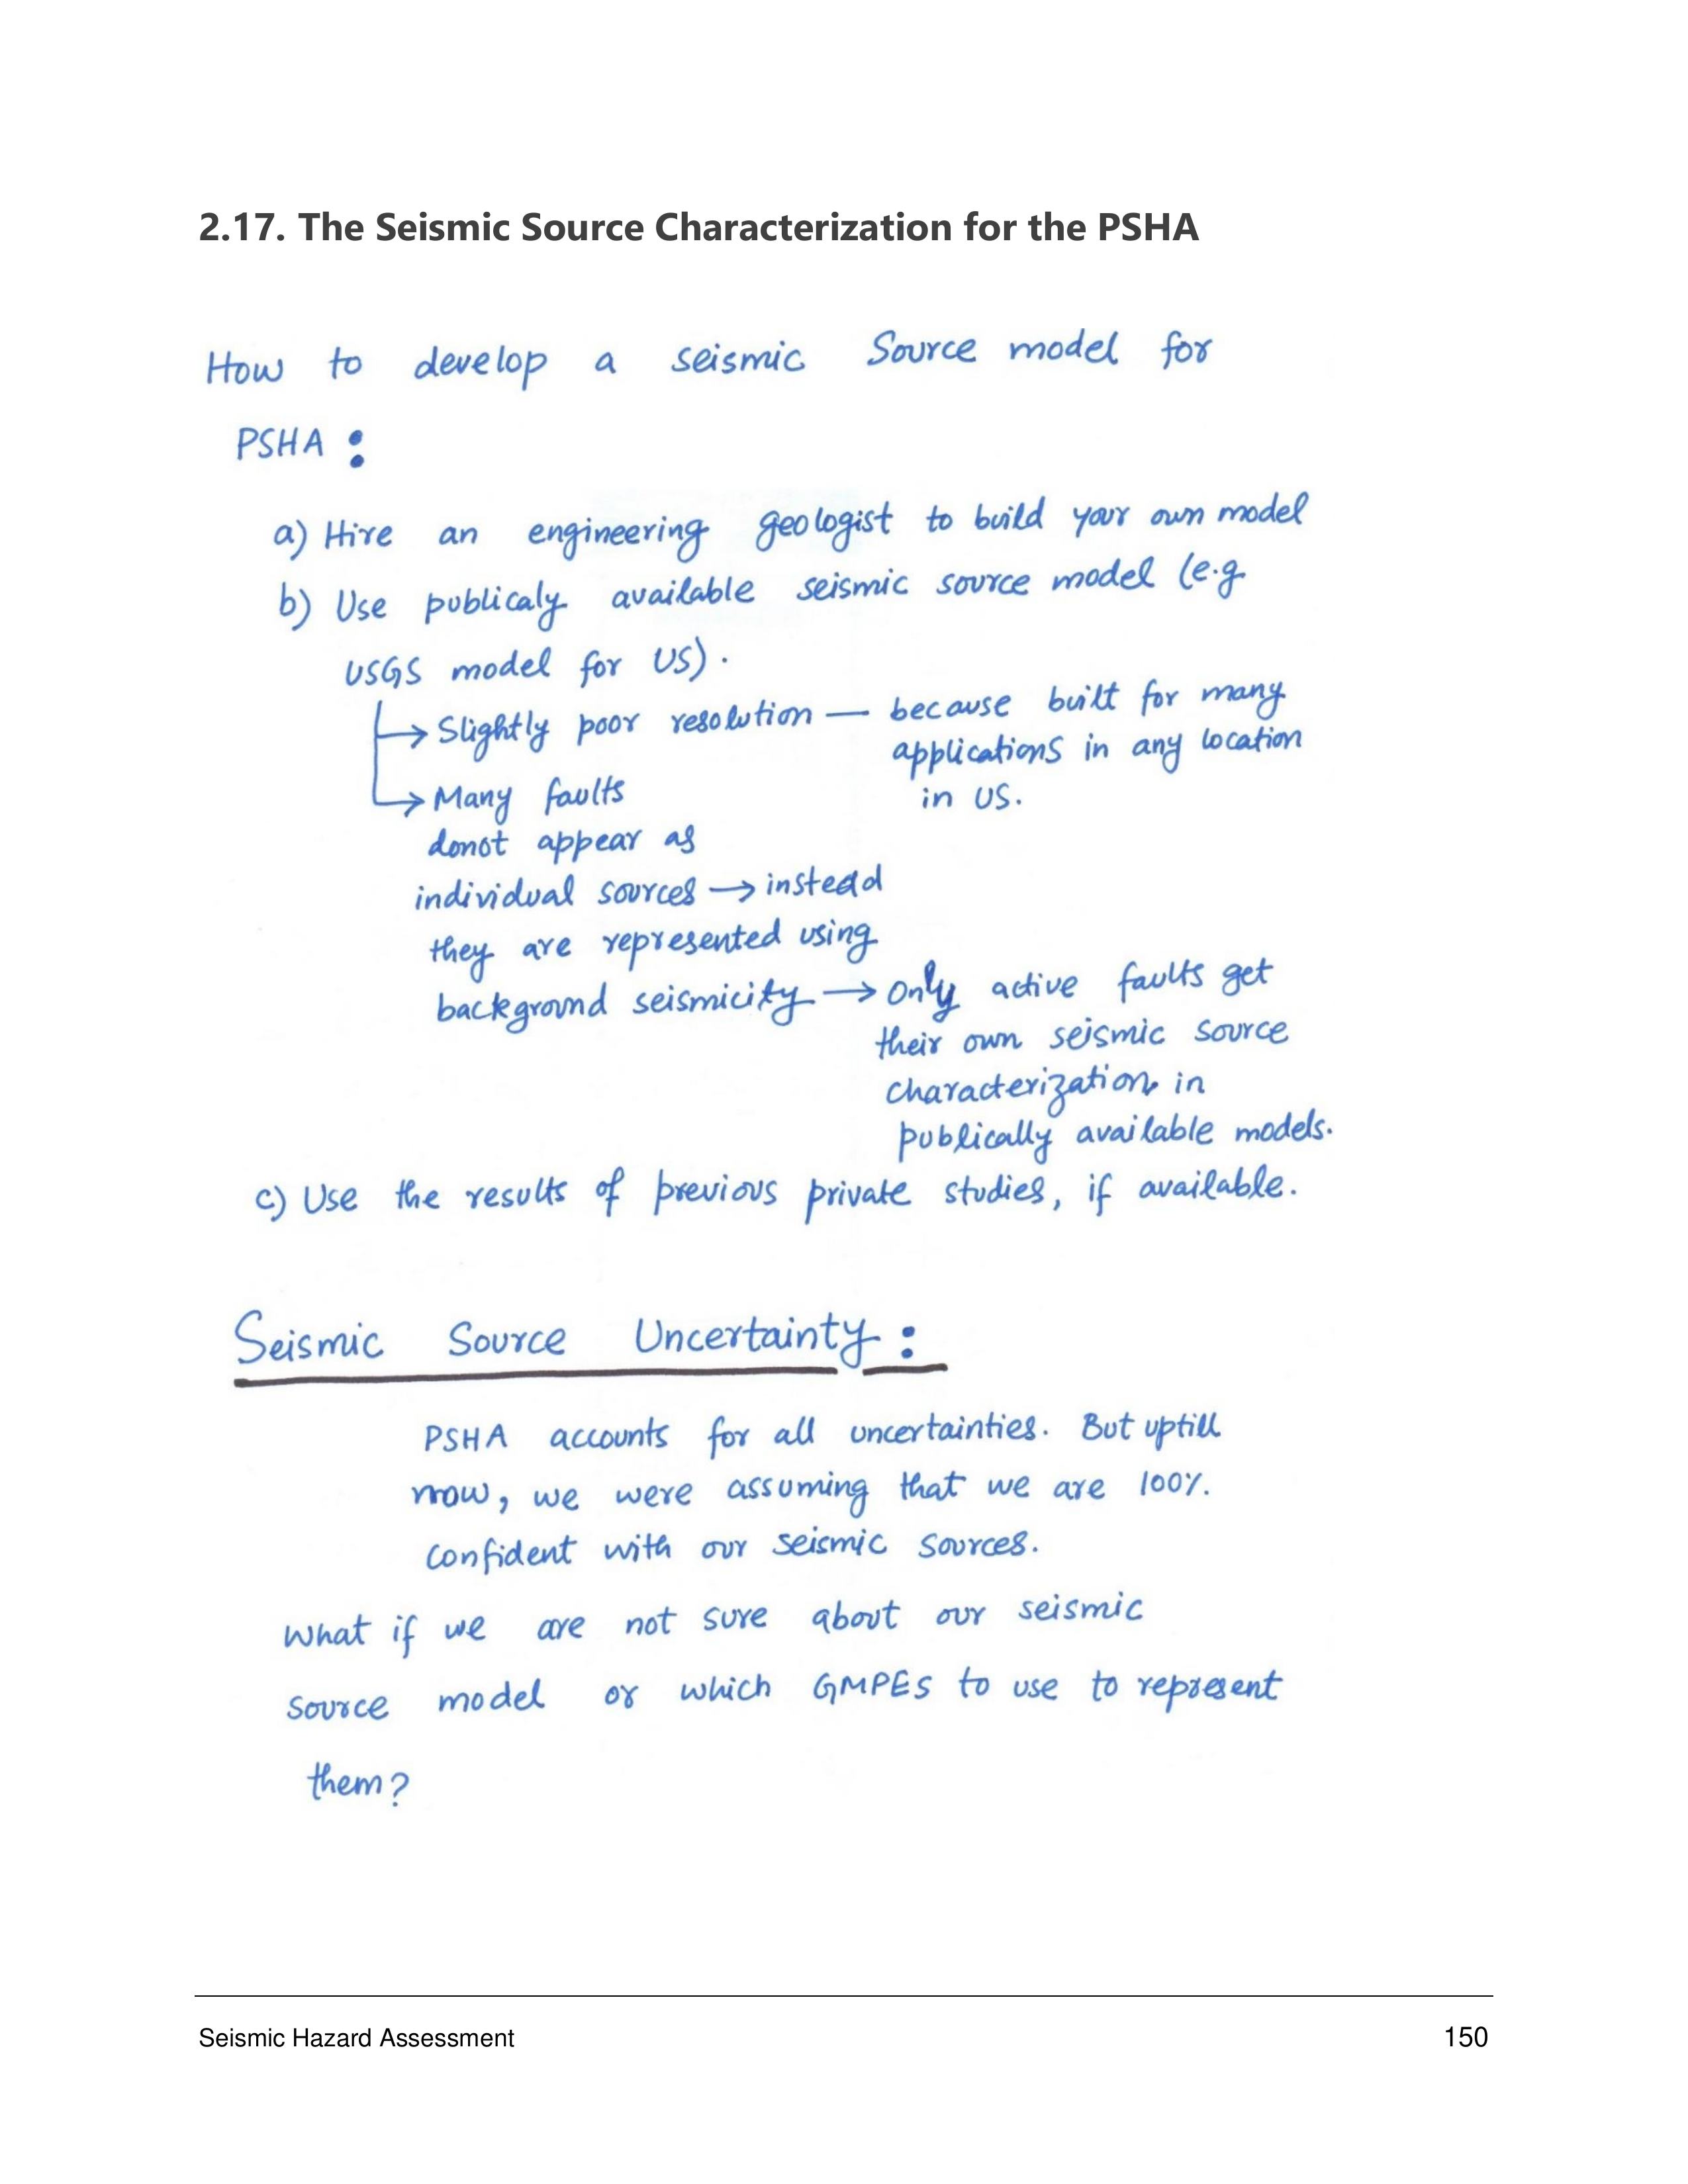 2.17. The Seismic Source Characterization for the PSHA
How to develop a seismic Source model for
PSHA :
a) Hire an engineering geologist to build your own model
b) Use publicaly available seismic source model (e.g
USGS model for US).
→ Slightly poor resolution — because built for many
applications in any location
in US.
→ Many faults
donot appear as
individual sources → instead
they are represented using
background seismicity → Only active faults get
their own seismic source
characterization in
publically available models.
c) Use the results of previous private studies, if available.
Seismic Source Uncertainty :
PSHA accounts for all uncertainties. But uptill
now, we were assuming that we are 100%
confident with our seismic sources.
What if we are not sure about our seismic
source model or which GMPEs to use to represent
them?
Seismic Hazard Assessment 150